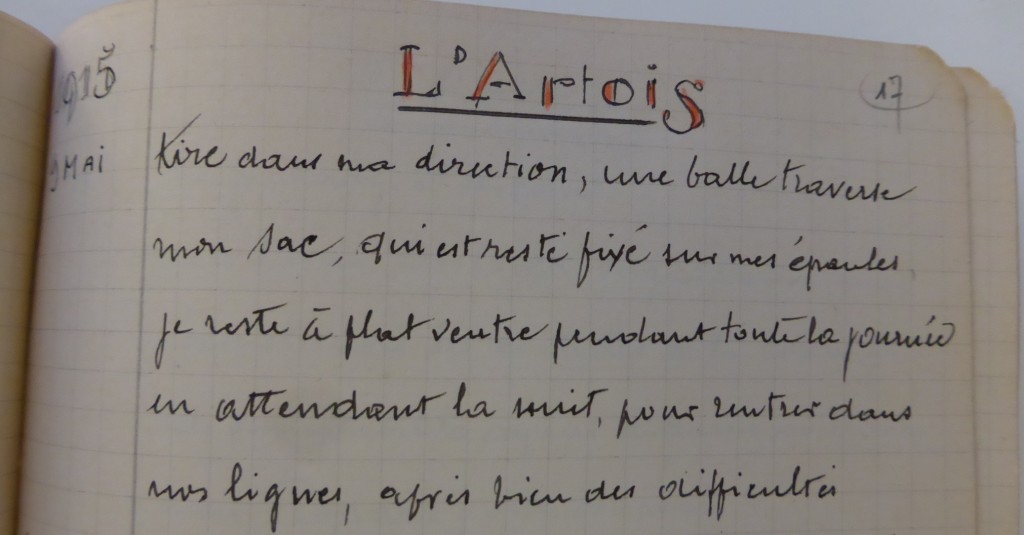 L'Artois
17
1915
9 MAi
tire dans ma direction, une balle traverse
mon sac, qui est resté fixé sur mes épaules,
je reste à plat ventre pendant toute la journée
en attendant la nuit, pour rentrer dans
nos lignes, après bien des difficultés